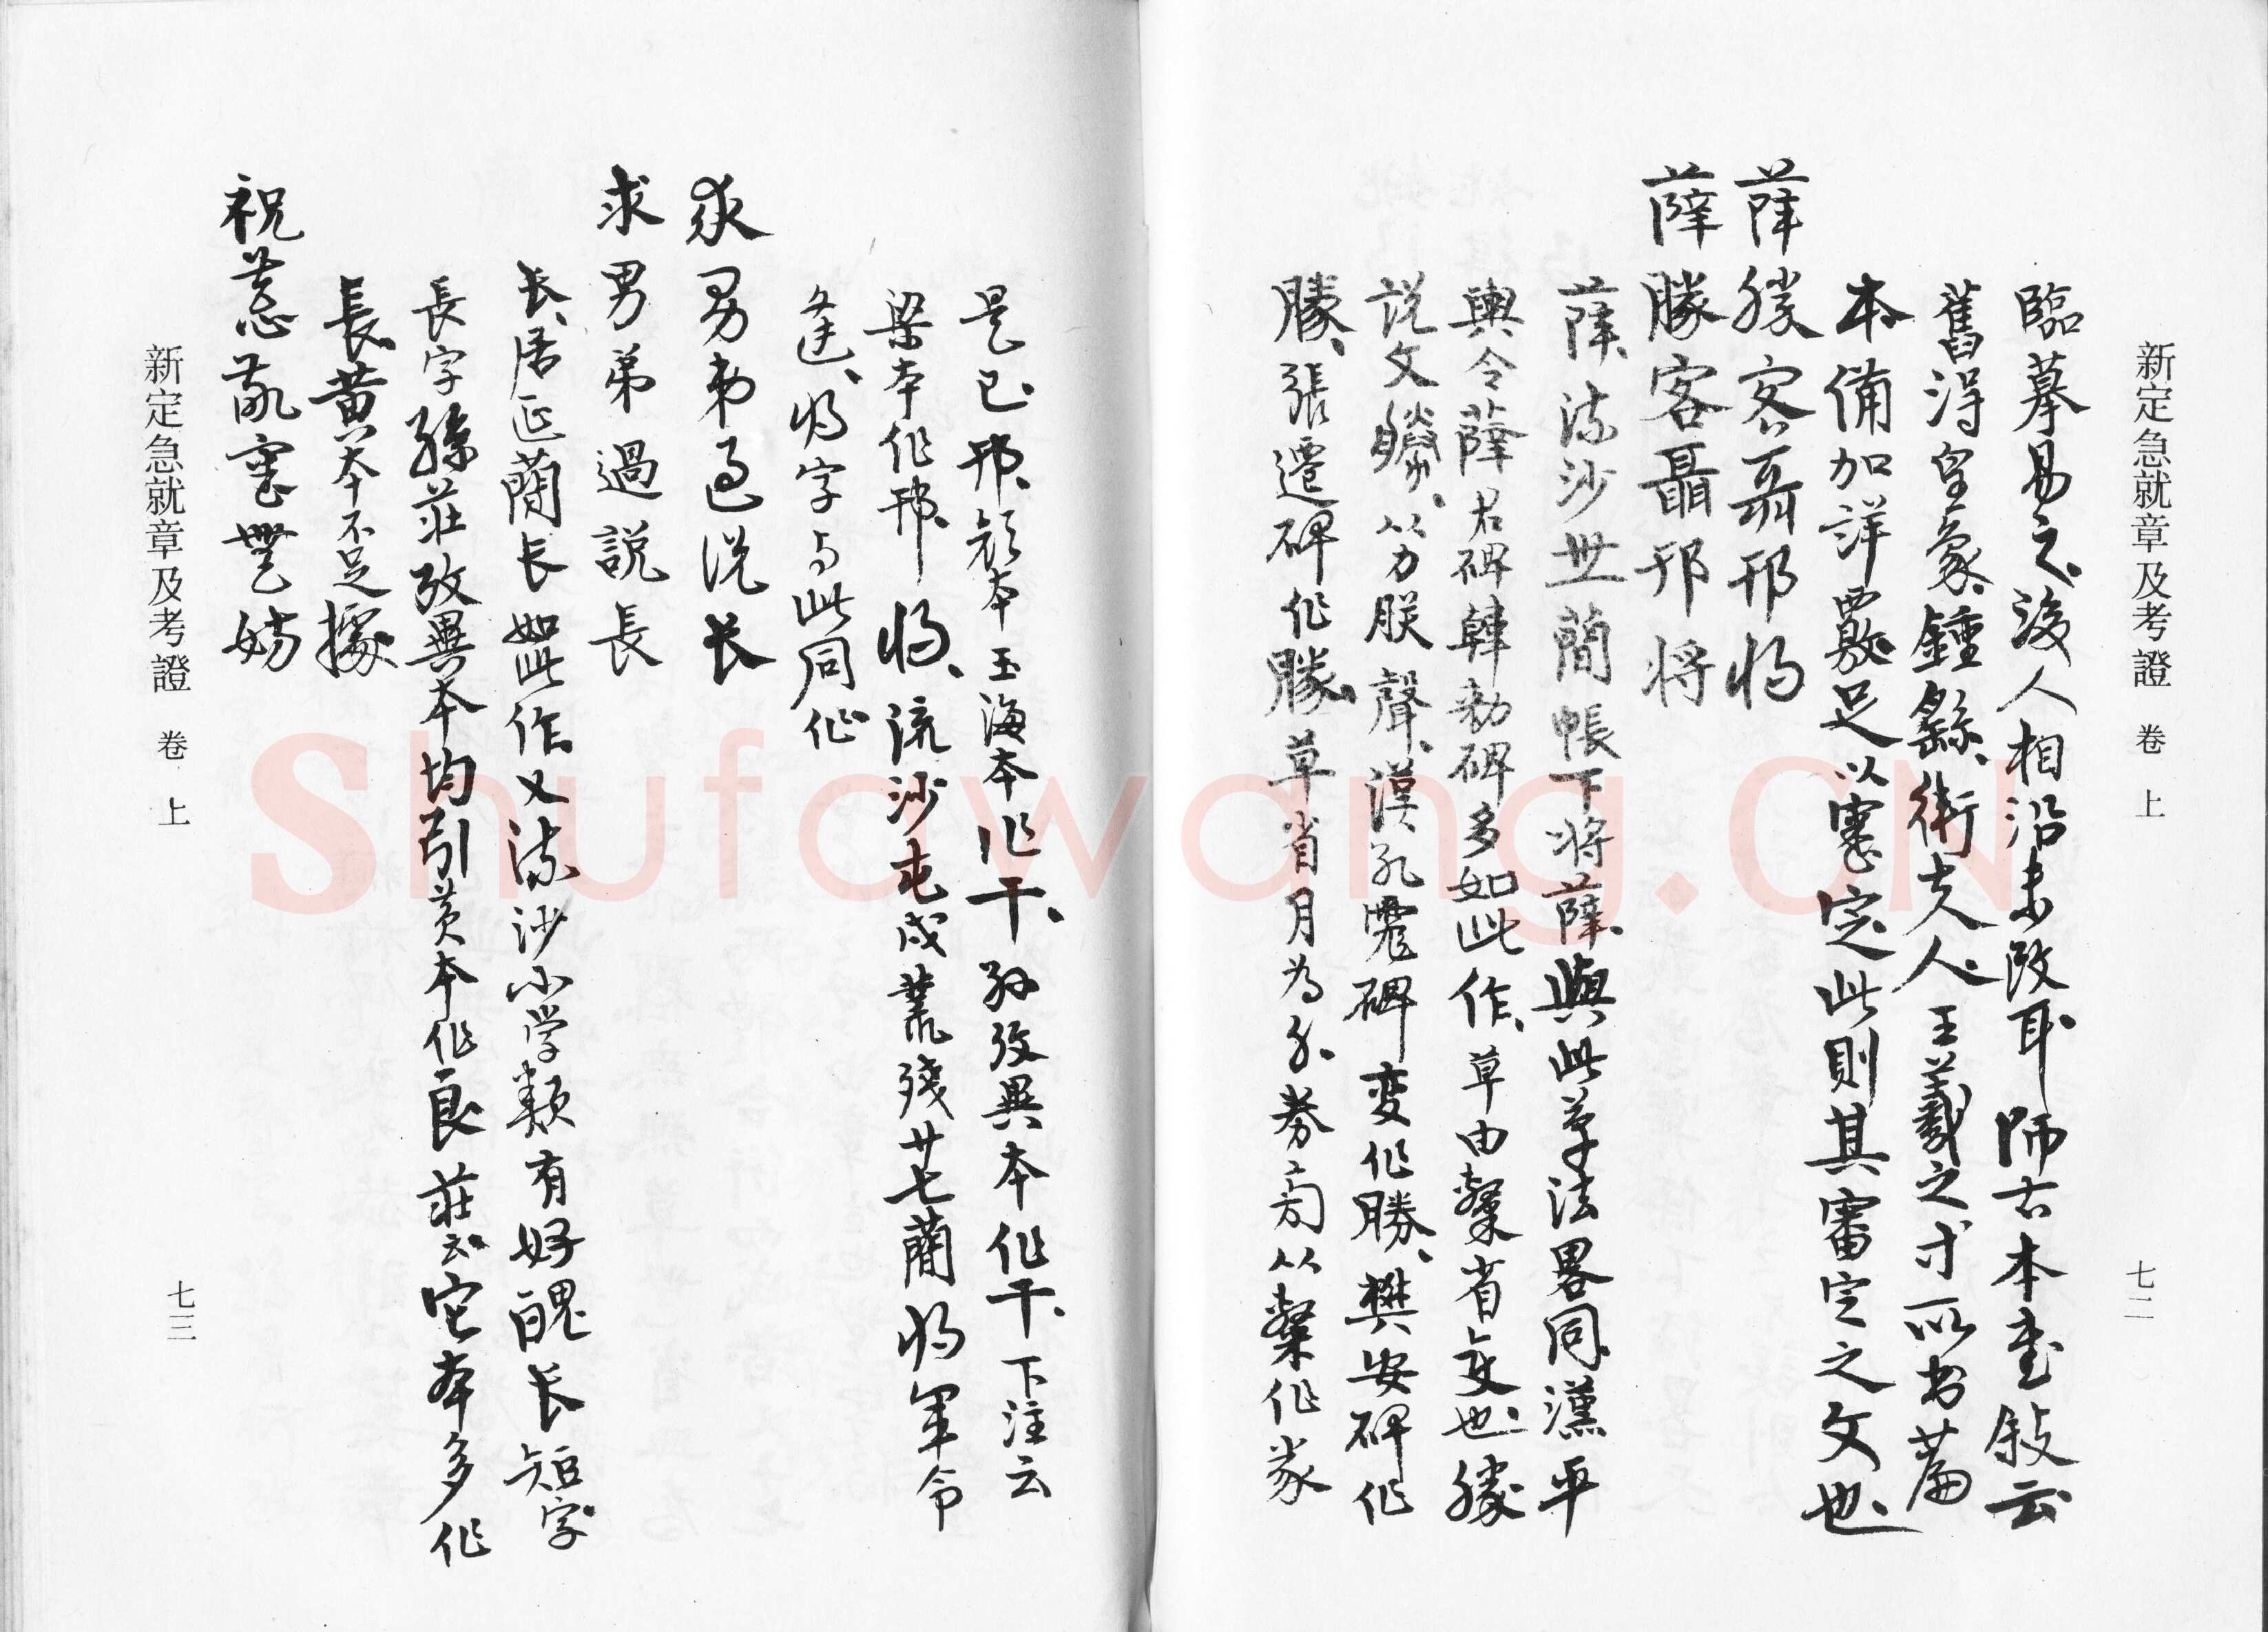 新定急就章及考證 卷上 七二
臨摹易之後人相沿未改耳師古本書敍云
舊得皇象鍾繇衛夫人王羲之等所書篇
本備加詳覈足以審定此則其審定之文也
薛勝客聶邗将
薛勝客聶邗将
薛流沙世簡帳下将薛與此草法畧同漢平
輿令薛君碑韓勑碑多如此作草由隸省变也勝
说文從力朕聲漢孔宙碑变作勝樊安碑作
勝張遷碑作勝草省月為
是已邗顔本玉海本作干孫攷異本作干下注云
梁本作邗将流沙屯戍叢殘廿七簡将軍令
将字与此同作
求男弟過说长
求男弟過説長
长居延簡长如此作又流沙小学類有好醜长短字
長字孫莊攷異本均引黄本作良莊云它本多作
長黄本不足據
祝恭敬審無妨
新定急就章及考證 卷上 七三
Shufawang.CN